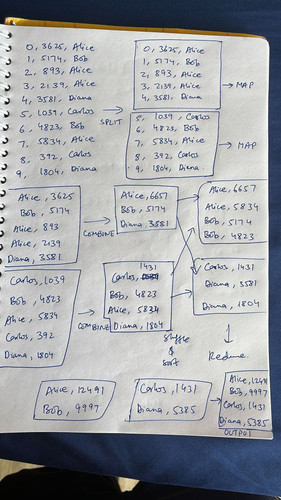 0, 3625, Alice
1, 5174, Bob
2, 893, Alice
3, 2139, Alice
4, 3581, Diana
5, 1039, Carlos
6, 4823, Bob
7, 5834, Alice
8, 392, Carlos
9, 1804, Diana
SPLIT
0, 3625, Alice
1, 5174, Bob
2, 893, Alice
3, 2139, Alice
4, 3581, Diana
MAP
5, 1039, Carlos
6, 4823, Bob
7, 5834, Alice
8, 392, Carlos
9, 1804, Diana
MAP
Alice, 3625
Bob, 5174
Alice, 893
Alice, 2139
Diana, 3581
COMBINE
Alice, 6657
Bob, 5174
Diana, 3581
Carlos, 1039
Bob, 4823
Alice, 5834
Carlos, 392
Diana, 1804
COMBINE
Carlos, 1431
Bob, 4823
Alice, 5834
Diana, 1804
Shuffle
&
Sort
Alice, 6657
Alice, 5834
Bob, 5174
Bob, 4823
Carlos, 1431
Diana, 3581
Diana, 1804
Reduce
Alice, 12491
Bob, 9997
Carlos, 1431
Diana, 5385
Alice, 12491
Bob, 9997
Carlos, 1431
Diana, 5385
OUTPUT